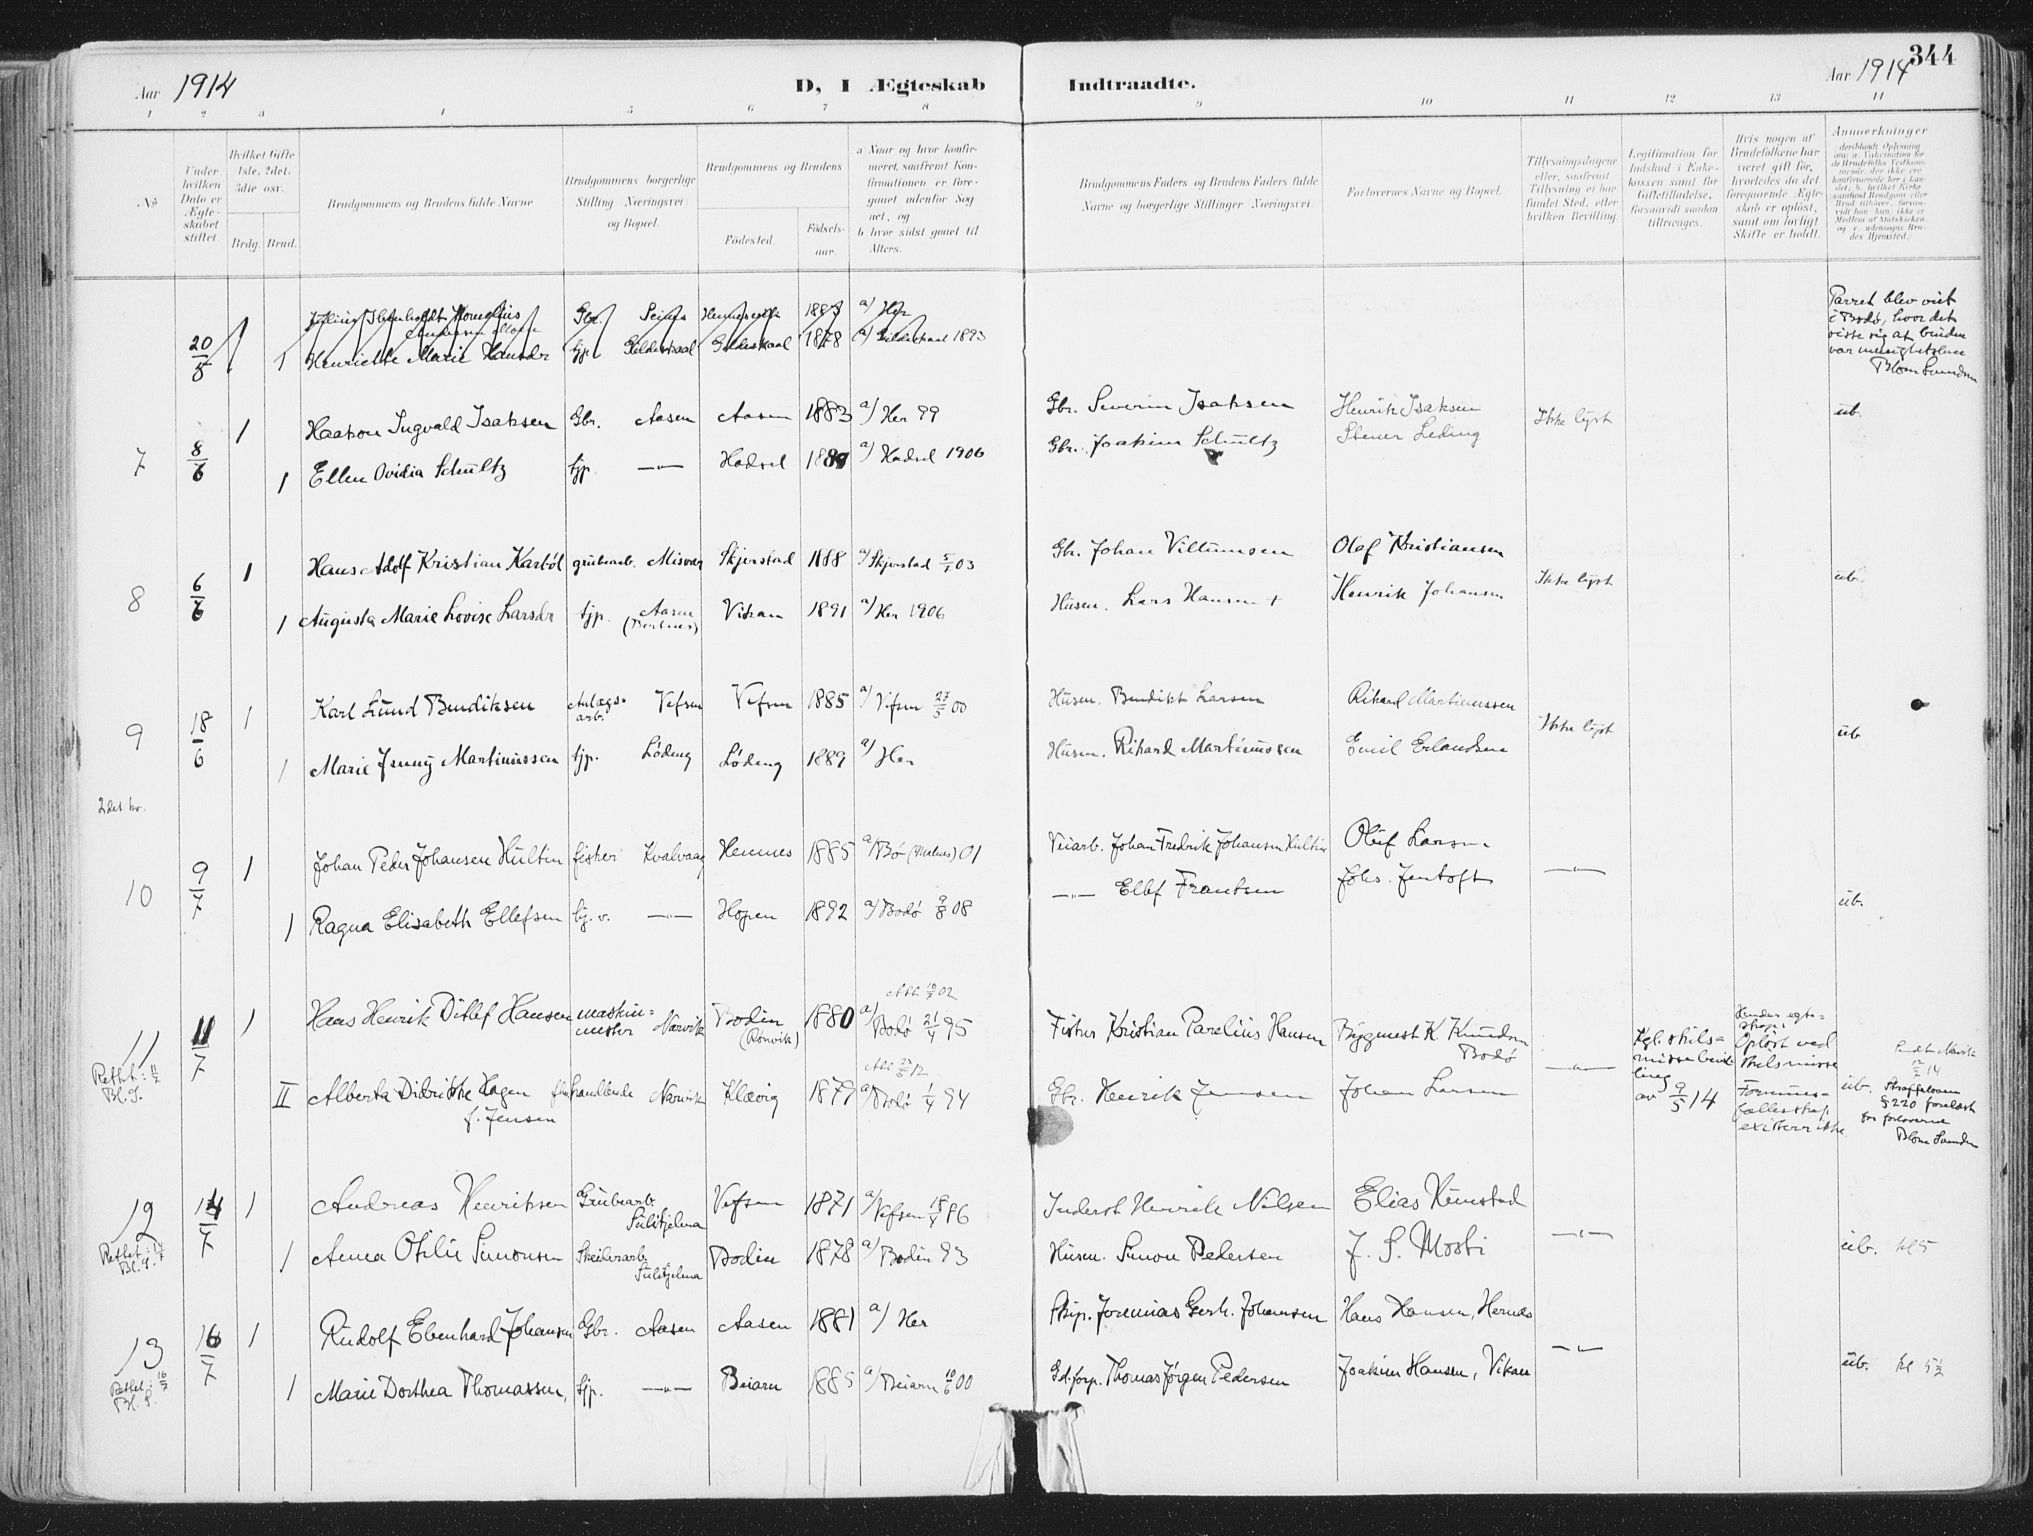 344
Aar 1914
D, I Ægteskab Indtraadte.
Aar 1914
1 2 3 4 5 6 7 8 9 10 11 12 13 14
No
Under hvilken Dato er Ægteskabet stiftet.
Hvilket Gifte 1ste, 2det, 3die osv.
Brdg. Brud.
Brudgommens og Brudens fulde Navne
Brudgommens borgerlige Stilling Næringsvei og Bopæl.
Brudgommens og Brudens
Fødested.
Fødselsaar
a Naar og hvor konfirmeret, saafremt Konfirmationen er foregaaet udenfor Sognet, og
b hvor sidst gaaet til Alters.
Brudgommens Faders og Brudens Faders fulde Navne og borgerlige Stillinger Næringsvei
Forlovernes Navne og Bopæl.
Tillysningsdagene eller, saafremt Tillysning ei har fundet Sted, efter hvilken Bevilling.
Legitimation for Indskud i Enkekassen samt for Giftetilladelse, forsaavidt saadan tiltrænges.
Hvis nogen af Brudefolkene har været gift før, hvorledes da det foregaaende Ægteskab er opløst, samt om lovligt Skifte er holdt.
Anmærkninger
20/5 1 1883 a) Her
Parret blev viet
i Bodø, hvor det
viste sig at bruden
1 Henriette Marie Hansdr tjp. Gildeskaal Gildeskaal 1878 a) Gildeskaal 1893
7 8/6 1 Haakon Ingvald Isaksen Gbr. Aasen Aasen 1883 a) Her 99 Gbr. Severin Isaksen Henrik Isaksen Ikke lyst ub.
1 Ellen Ovidia Schultz tjp. —„— Hadsel 1889 a) Hadsel 1906 Gbr. Joakim Schultz Stener Leding
8 6/6 1 Hans Adolf Kristian Karbøl grubearb. Misvær Skjerstad 1888 a) Skjerstad 5/7 03 Gbr. Johan Villumsen Olaf Kristiansen Ikke lyst ub.
1 Augusta Marie Lovise Larsdr tjp. Aasen Vikan 1891 a) Her 1906 Husm. Lars Hansen + Henrik Johansen
9 18/6 1 Karl Lund Bendiksen Anlægsarb. Vefsn Vefsn 1885 a) Vefsn 27/5 00 Husm. Bendikt Larsen Rikard Martinussen Ikke lyst ub
1 Marie Jenny Martinussen tjp. Løding Løding 1889 a) Her Husm. Rikard Martinussen Emil Erlandsen
2det kv.
10 9/7 1 Johan Peder Johansen Hultin fisker Kvalvaag Hennes 1885 a) Bø 01 Veiarb. Johan Fredrik Johansen Hultin Oluf Larsen —„— ub.
1 Ragna Elisabeth Ellefsen tj. v. —„— Hopen 1892 a) Bodø 9/8 08 —„— Ellef Frantsen Johs. Jentoft
11 11/7 1 Hans Henrik Ditlef Hansen maskinmester Narvik Bodin (Rønvik) 1880 a) Bodø 21/4 95 Fisker Kristian Parelius Hansen Bygmest K. Knudsen Bodø
Kgl. skilsmissebevilling av 9/5 14
Hendes egteskap: Opløst ved skilsmisse
Formuesfællesskap existerer ikke
Rettet: 11/7 Bl. S.
II Alberta Didrikke Hagen f. Jensen handlende Narvik Klævig 1879 a) Bodø 1/4 94 Gbr. Henrik Jensen Johan Larsen —„— ub.
Straffeloven
§ 220 forelæst
for forloverne
12 14/7 1 Andreas Henriksen Grubearb. Sulitjelma Vefsn 1871 a) Vefsen 18/7 86 Inderst Henrik Nilsen Elias Rimstad —„— ub. kl 5
Rettet: 14/7 Bl. S.
1 Anna Otilie Simonsen Skeiderarb. Sulitjelma Bodin 1878 a) Bodin 93 Husm. Simon Pedersen J. S. Mosti
13 16/7 1 Rudolf Ebenhard Johansen Gbr. Aasen Aasen 1881 a) Her Skip. Jeremias Gerh. Johansen Hans Hansen, Hernes —„— ub. kl 5½
Rettet: 16/7 Bl. S.
1 Marie Dorthea Thomassen, tjp. —„— Beiarn 1885 a) Beiarn 10/6 00 Gd.forp. Thomas Jørgen Pedersen Joakim Hansen, Vikan